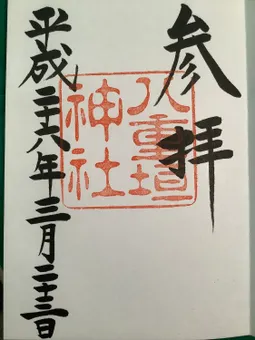 参拝
八重垣
神社
平成二十六年三月二十三日